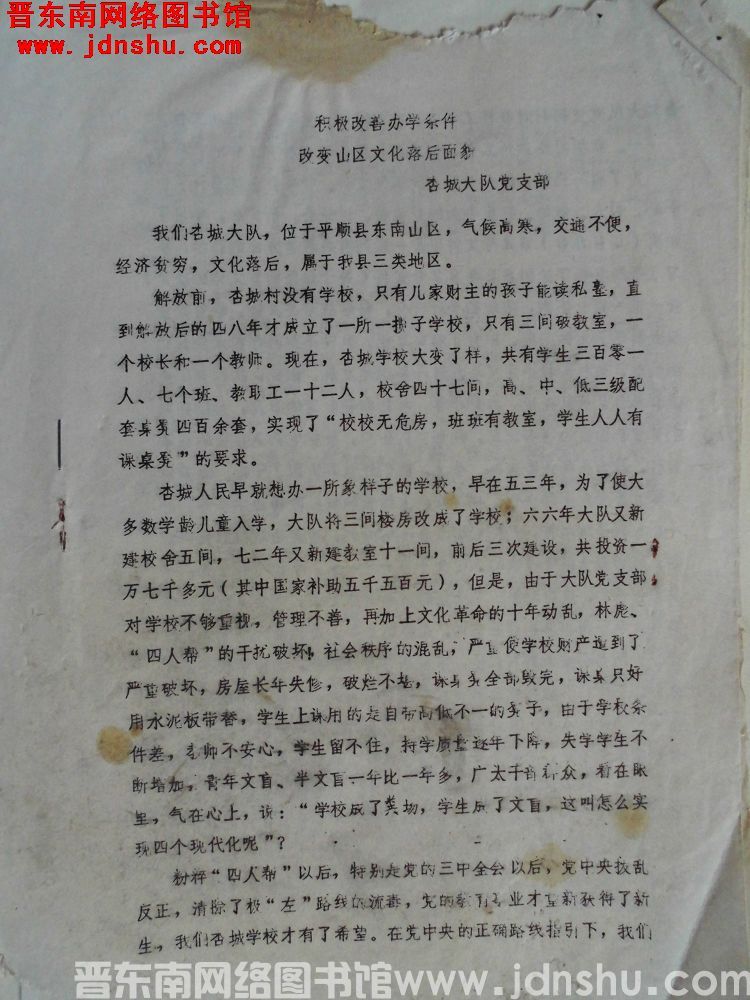 晋东南网络图书馆
www.jdnshu.com
积极改善办学条件
改变山区文化落后面貌
杏城大队党支部
我们杏城大队，位于平顺县东南山区，气候高寒，交通不便，
经济贫穷，文化落后，属于我县三类地区。
解放前，杏城村没有学校，只有几家财主的孩子能读私塾，直
到解放后的四八年才成立了一所一揽子学校，只有三间破教室，一
个校长和一个教师。现在，杏城学校大变了样，共有学生三百零一
人、七个班、教职工一十二人，校舍四十七间，高、中、低三级配
套桌凳四百余套，实现了“校校无危房，班班有教室，学生人人有
课桌凳”的要求。
杏城人民早就想办一所象样子的学校，早在五三年，为了使大
多数学龄儿童入学，大队将三间楼房改成了学校；六六年大队又新
建校舍五间，七二年又新建教室十一间，前后三次建设，共投资一
万七千多元（其中国家补助五千五百元），但是，由于大队党支部
对学校不够重视，管理不善，再加上文化革命的十年动乱，林彪、
“四人帮”的干扰破坏，社会秩序的混乱，严重使学校财产遭到了
严重破坏，房屋长年失修，破烂不堪，课桌凳全部毁完，课桌只好
用水泥板带替，学生上课用的是自带高低不一的凳子，由于学校条
件差，老师不安心，学生留不住，持学质量逐年下降，失学学生不
断增加，青年文盲、半文盲一年比一年多，广大干部群众，看在眼
里，气在心上，说：“学校成了粪场，学生成了文盲，这叫怎么实
现四个现代化呢”？
粉粹“四人帮”以后，特别是党的三中全会以后，党中央拨乱
反正，清除了极“左”路线的流毒，党的教育事业才重新获得了新
生，我们杏城学校才有了希望。在党中央的正确路线指引下，我们
晋东南网络图书馆www.jdnshu.com